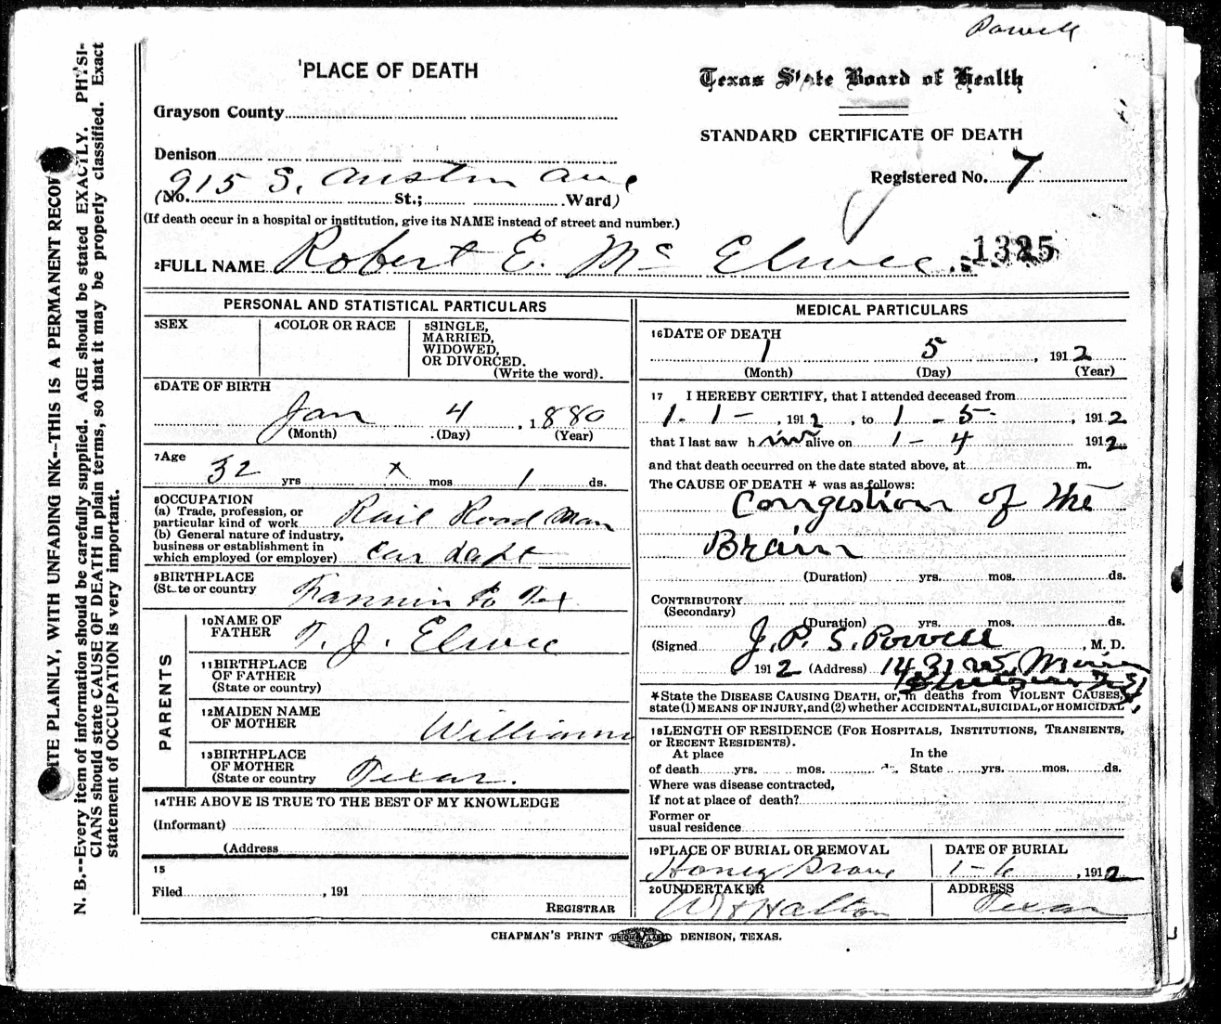 Powell
PLACE OF DEATH
Grayson County
Denison
915 S. Austin Ave
(No. St.; Ward)
(If death occur in a hospital or institution, give its NAME instead of street and number.)
Texas State Board of Health
STANDARD CERTIFICATE OF DEATH
Registered No. 7
1325
2FULL NAME Robert E. Mc Elwee.
PERSONAL AND STATISTICAL PARTICULARS
3SEX
4COLOR OR RACE
5SINGLE,
MARRIED,
WIDOWED,
OR DIVORCED.
(Write the word).
6DATE OF BIRTH
Jan 4, 1880
(Month) (Day) (Year)
7Age
32 yrs x mos 1 ds.
8OCCUPATION
(a) Trade, profession, or
particular kind of work Rail Road Man
(b) General nature of industry,
business or establishment in
which employed (or employer) Car dept
9BIRTHPLACE
(State or country Fannin Co Tex
PARENTS
10NAME OF
FATHER T. J. Elwee
11BIRTHPLACE
OF FATHER
(State or country)
12MAIDEN NAME
OF MOTHER Williams
13BIRTHPLACE
OF MOTHER
(State or country Texas.
14THE ABOVE IS TRUE TO THE BEST OF MY KNOWLEDGE
(Informant)
(Address
15
Filed , 191
REGISTRAR
MEDICAL PARTICULARS
16DATE OF DEATH
1 5, 1912
(Month) (Day) (Year)
17 I HEREBY CERTIFY, that I attended deceased from
1. 1 - 1912, to 1 - 5 -, 1912
that I last saw him alive on 1 - 4 1912
and that death occurred on the date stated above, at m.
The CAUSE OF DEATH * was as follows:
Congestion of the
Brain
(Duration) yrs. mos. ds.
CONTRIBUTORY
(Secondary)
(Duration) yrs. mos. ds.
(Signed J. P. S. Powell, M. D.
1912 (Address) 1431 W. Main
*State the DISEASE CAUSING DEATH, or, in deaths from VIOLENT CAUSES,
state (1) MEANS OF INJURY, and (2) whether ACCIDENTAL, SUICIDAL, or HOMICIDAL
18LENGTH OF RESIDENCE (FOR HOSPITALS, INSTITUTIONS, TRANSIENTS,
OR RECENT RESIDENTS).
At place In the
of death yrs. mos. State yrs. mos. ds.
Where was disease contracted,
If not at place of death?
Former or
usual residence
19PLACE OF BURIAL OR REMOVAL
Honey Grove
DATE OF BURIAL
1-6, 1912
20UNDERTAKER
Halton
ADDRESS
Texas
CHAPMAN'S PRINT DENISON, TEXAS.
N. B.--Every item of information should be carefully supplied. AGE should be stated EXACTLY. PHYSI-
CIANS should state CAUSE OF DEATH in plain terms, so that it may be properly classified. Exact
statement of OCCUPATION is very important.
ITE PLAINLY, WITH UNFADING INK--THIS IS A PERMANENT RECOR